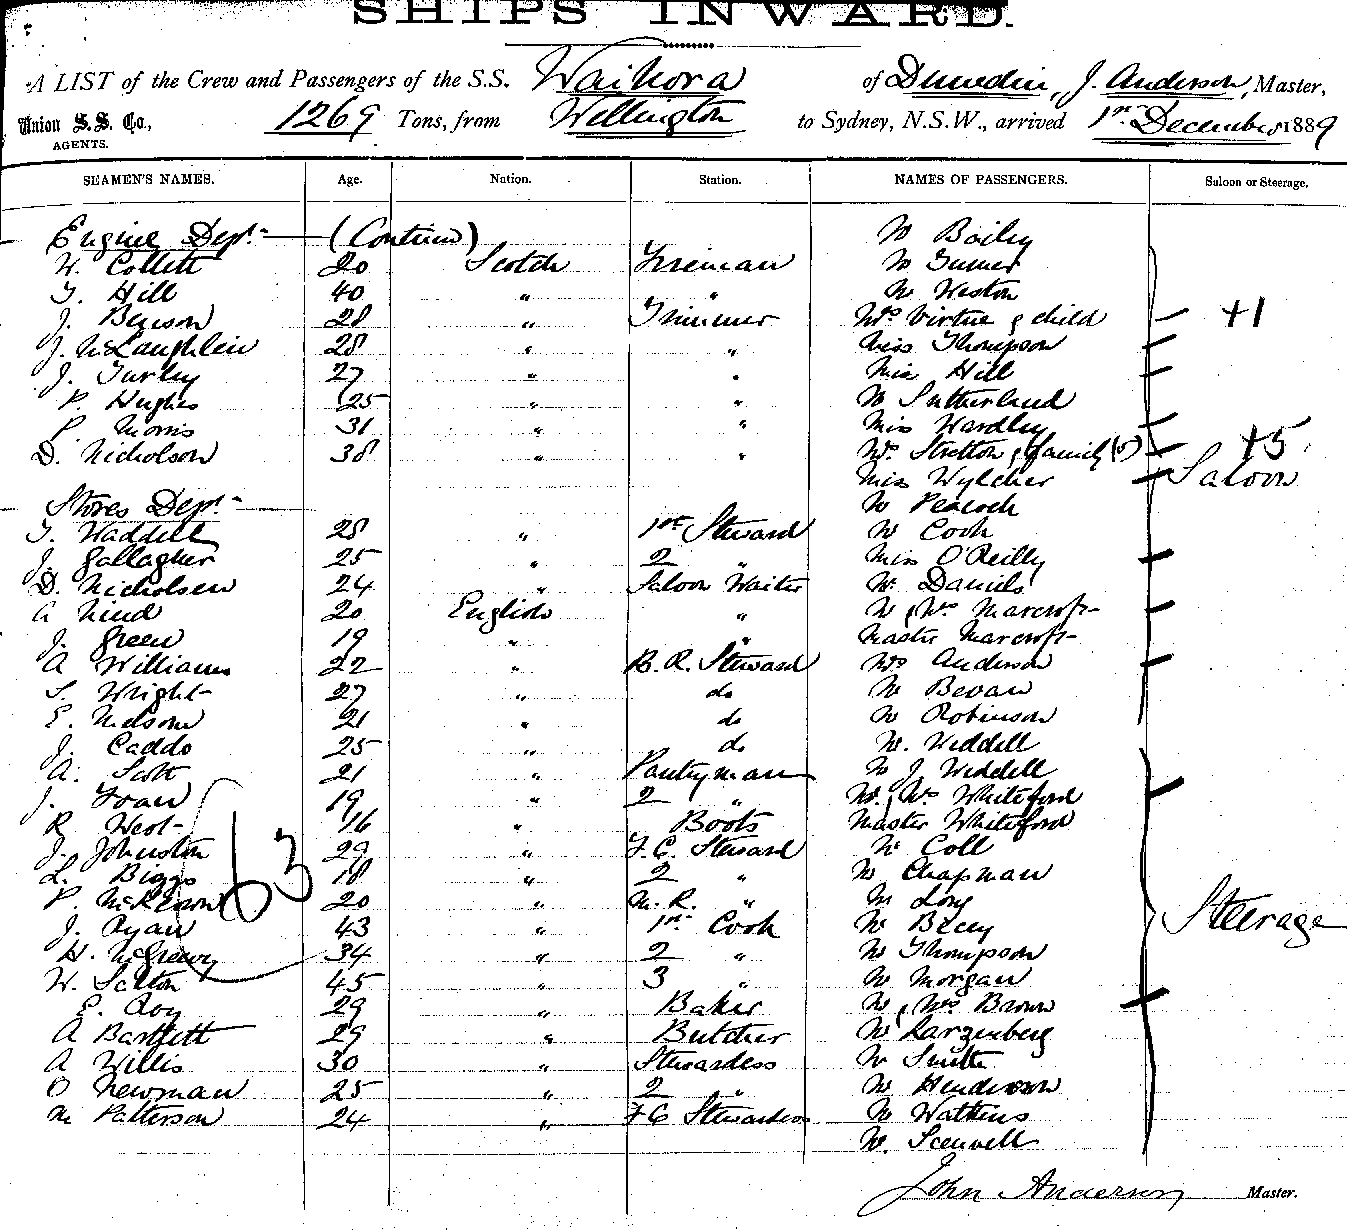 SHIPS INWARD.
A LIST of the Crew and Passengers of the S.S. Waihora of Dunedin, J. Anderson, Master,
Union S.S. Co., AGENTS. 1269 Tons, from Wellington to Sydney, N.S.W., arrived 1st December 1889
SEAMEN'S NAMES. Age. Nation. Station. NAMES OF PASSENGERS. Saloon or Steerage.
Engine Dept. (Continu) Mr Bailey
W. Collett 20 Scotch Fireman Mr Turner
T. Hill 40 " " Mr Weston
J. Benson 28 " Trimmer Mrs Virtue & child +1
J. McLaughlin 28 " " Miss Thompson
J. Turley 27 " " Miss Hill
P. Hughes 25 " " Mr Sutherland
P. Morris 31 " " Miss Wardley
D. Nicholson 38 " " Mrs Stretton & family (5) +5
Miss Wylcher Saloon
Stores Dept. Mr Peacock
T. Waddell 28 " 1st Steward Mr Cook
J. Gallagher 25 " 2 " Miss O'Reilly
D. Nicholsen 24 " Saloon Waiter Mr Daniels
A Hind 20 English " Mr & Mrs Marcroft
J. Green 19 " " Master Marcroft
A Williams 22 " B.R. Steward Mrs Anderson
S. Wright 27 " do Mr Bevan
E. Nelson 21 " do Mr Robinson
J. Caddo 25 " do Mr. Weddell
A. Scott 21 " Pantryman Mr J. Weddell
J. 19 " 2 " Mr. & Mrs Whiteford
R West 16 " Boots Master Whiteford
J. Johnston 29 " F.C. Steward Mr Coll
L. Biggs 18 " 2 " Mr Chapman
63
P. McKeown 20 " M.R. " Mr Long
J. Ryan 43 " 1st Cook Mr Steerage
H. McGreevy 34 " 2 " Mr Thompson
W. 45 " 3 " Mr Morgan
E. Roy 29 " Baker Mr & Mrs Brown
A Bartlett 29 " Butcher Mr
A Willis 30 " Stewardess Mr Smith
B Newman 25 " 2 " Mr Henderson
M Patterson 24 " F C Stewardess Mr Watkins
Mr.
John Anderson Master.